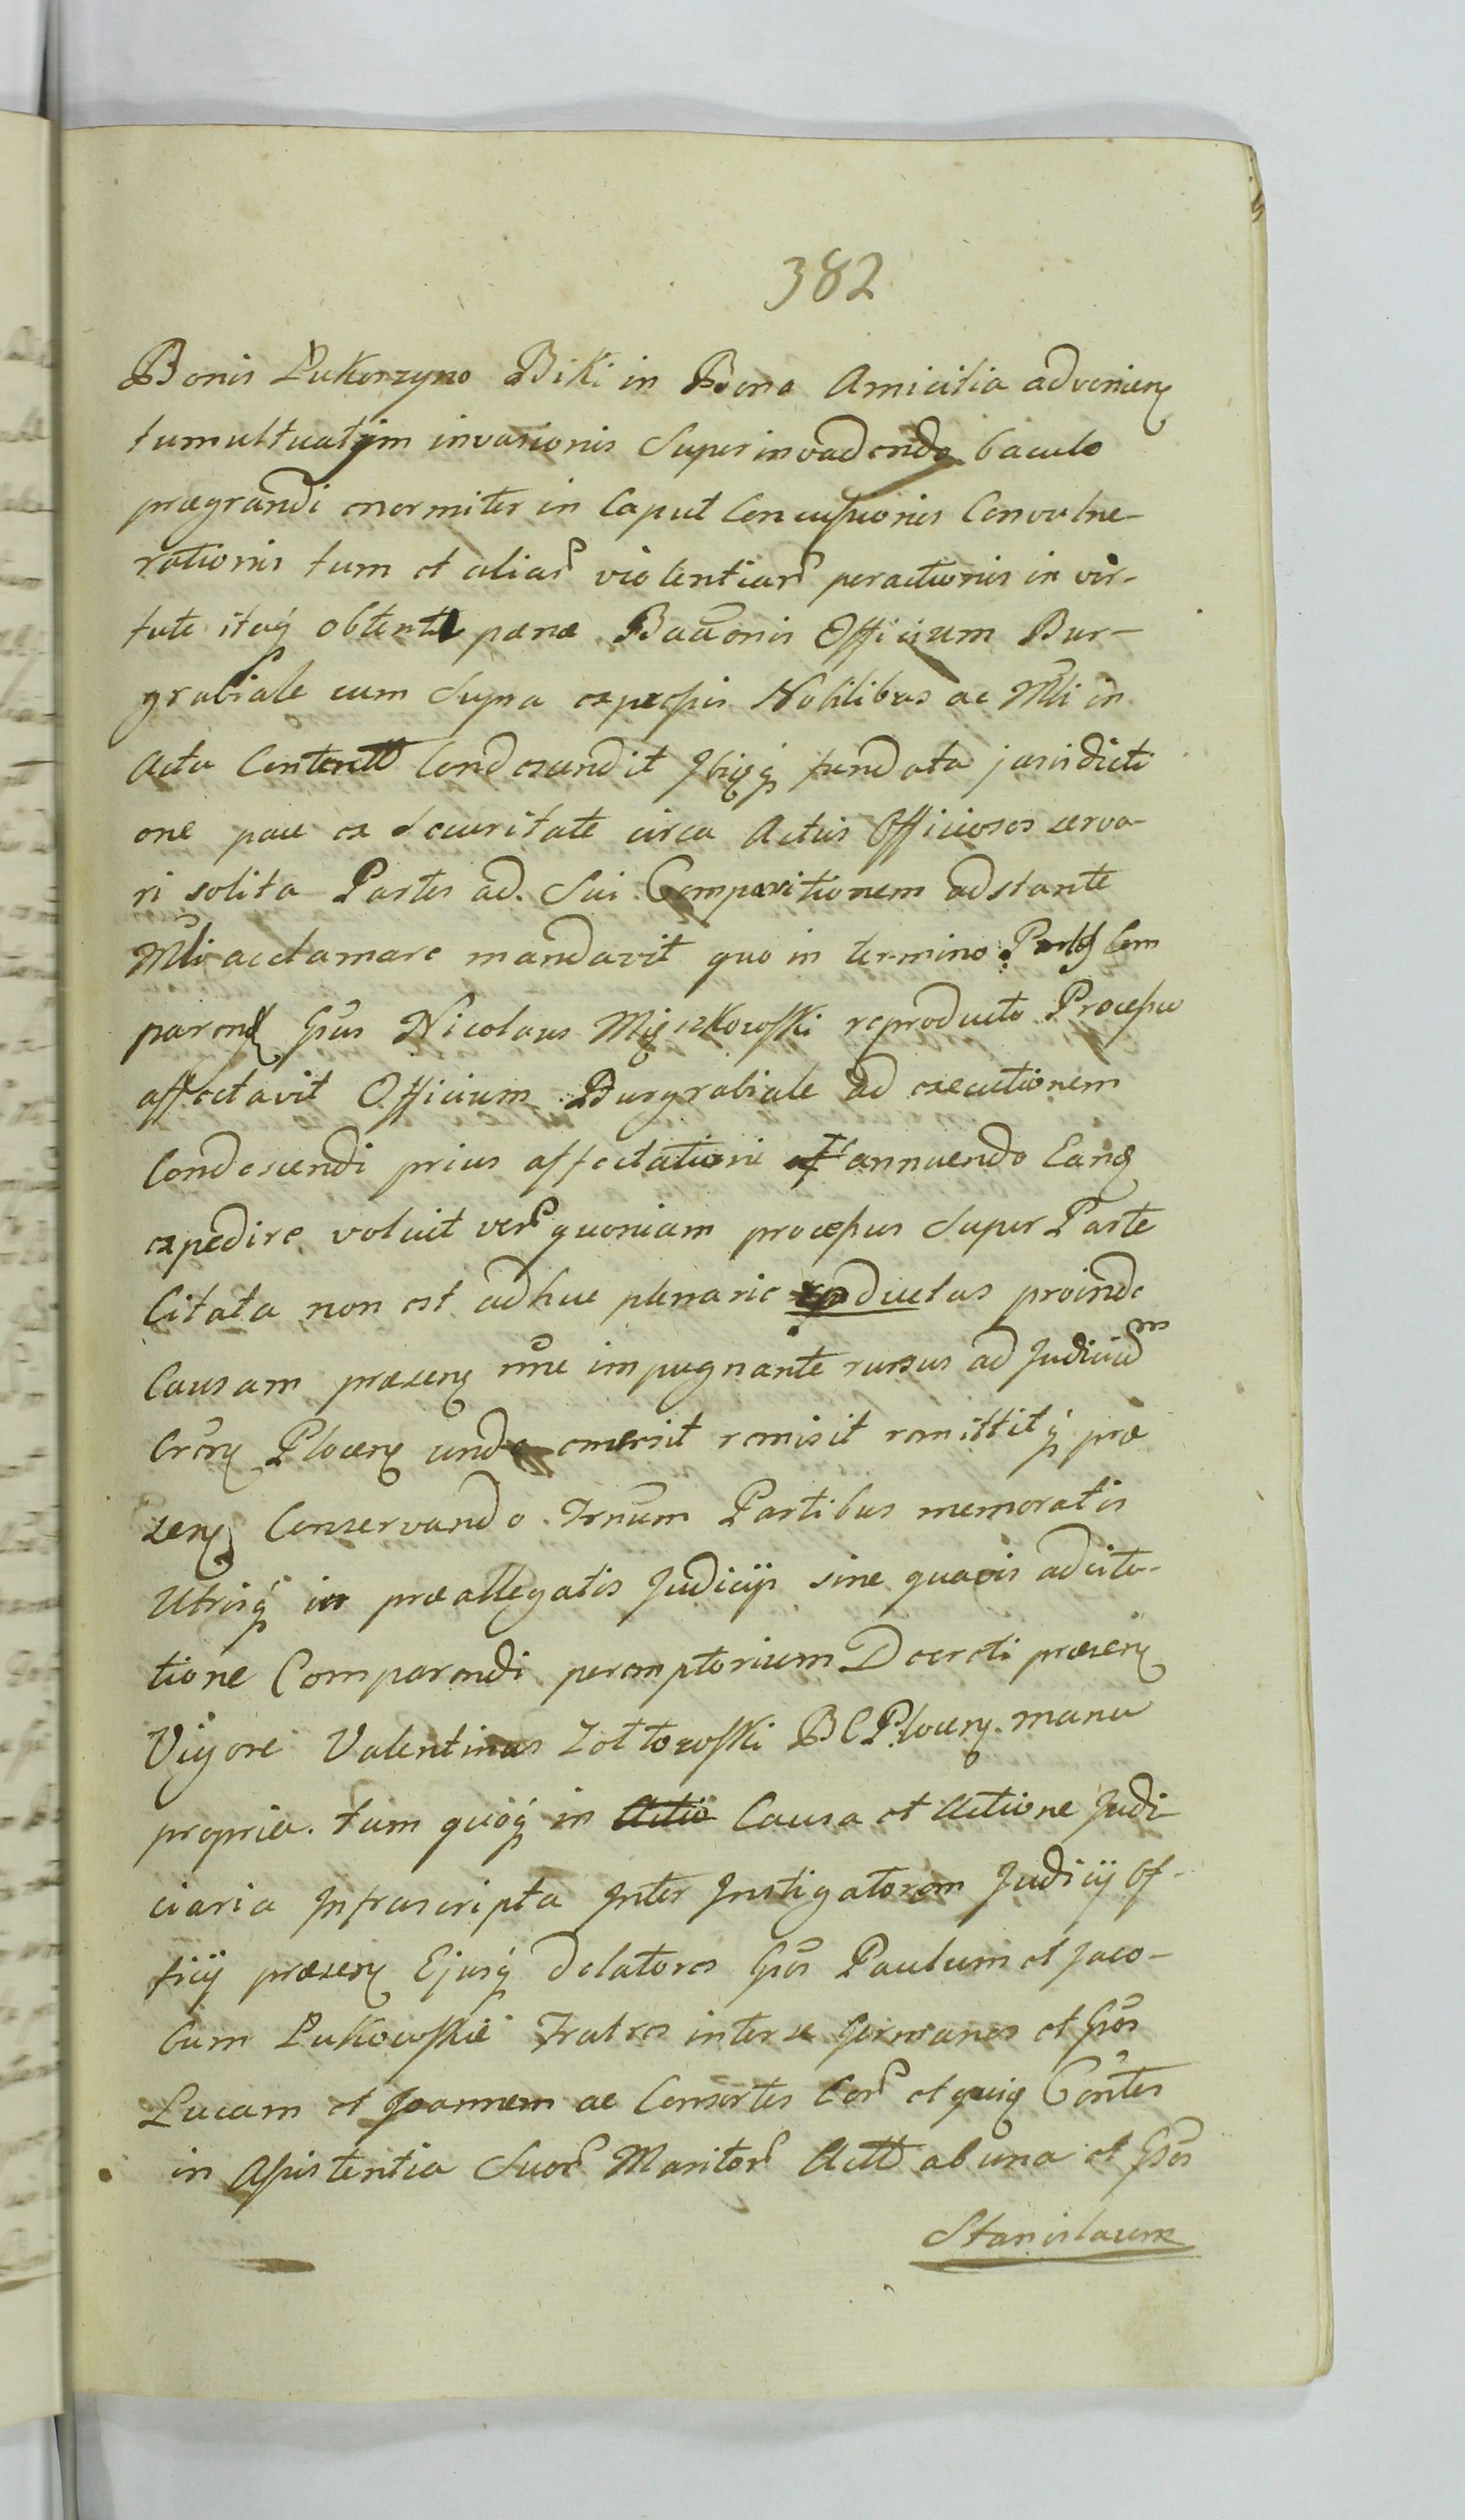 382
Bonis Lukorzyno Biki in Bona Amicitia advenien
tumultuatim invasionis Superinvadendo baculo
prægrandi enormiter in Caput Concussionis Convulne-
rationis tum et aliar violentiar peractionis in vir-
tute itaq obtent pænæ Baūonis Officium Bur-
grabiale cum Supra expressis Nobilibus ac Mli in
Actu Content Condescendit Ibiq fundata jurisdicti
one pace ex Securitate circa Actus Officiosos serva-
ri solita Partes ad Sui Comparitionem adstante
Mli acclamare mandavit quo in termino Part Com
paren Gsus Nicolaus Mięszkowsski reproducto Processu
affectavit Officium Burgrabiale ad executionem
Condescendi prius affectationi annuendo Eang
expedire voluit ver quoniam processus Super Parte
Citata non est adhuc plenarie eductus proinde
Causam præsen nne impugnante rursus ad Judicium
Crên Plocen unde emersit remisit remittitq præ
sen Conservando Trnum Partibus memoratis
Utrisq in præallegatis Judicijs sine quavis adcita-
tione Comparendi peremptorium Decreti præsen
Vigore Valentinus Zołtowsski BCPlocen manu
propria. tum quoq in Actio Causa et Actione Judi
ciaria Infrascripta Inter Instigatorem Judicij Of-
ficij præsen Ejusq delatores Gsos Paulum et Jaco-
bum Lukowskie Fratres inter se Germanos et Gsos
Lucam et Joannem ac Consortes Eor et quiq Contes
in Assistentia Suor Maritor Actt ab una et Gsos
Stanislaum